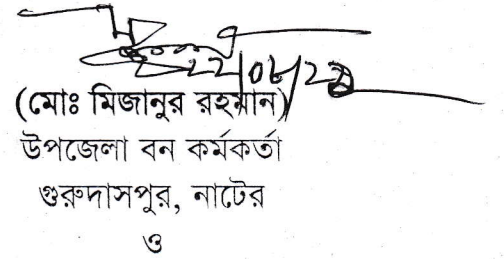 (মোঃ মিজানুর রহমান)
উপজেলা বন কর্মকর্তা
গুরুদাসপুর, নাটোর
ও